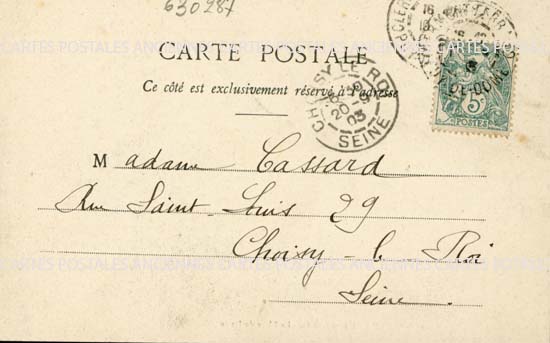 630287
CARTE POSTALE
Ce côté est exclusivement réservé à l'adresse
CHOISY LE ROI
20
03
SEINE
16
PUY-DE-DOME
5c
POSTES
Madame Cassard
Rue Saint-Louis 29
Choisy-le Roi
Seine.
CARTES POSTALES ANCIENNES